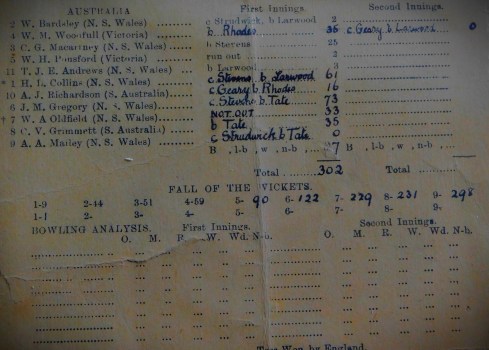 AUSTRALIA First Innings. Second Innings.
2 W. Bardsley (N. S. Wales) c Strudwick, b Larwood 2
4 W. M. Woodfull (Victoria) b Rhodes 35 c Geary b Larwood 0
3 C. G. Macartney (N. S. Wales) b Stevens 25
5 W. H. Ponsford (Victoria) run out 2
11 T. J. E. Andrews (N. S. Wales) b Larwood 3
* 1 H. L. Collins (N. S. Wales) c Stevens b Larwood 61
10 A. J. Richardson (S. Australia) c Geary b Rhodes 16
6 J. M. Gregory (N. S. Wales) c Stevens b Tate 73
† 7 W. A. Oldfield (N. S. Wales) NOT OUT 33
8 C. V. Grimmett (S. Australia) b Tate 35
9 A. A. Mailey (N. S. Wales) c Strudwick b Tate 0
B , l-b , w , n-b , 17 B , l-b , w , n-b ,
Total 302 Total
FALL OF THE WICKETS.
1-9 2-44 3-51 4-59 5- 90 6- 122 7- 229 8- 231 9- 298
1-1 2- 3- 4- 5- 6- 7- 8- 9-
BOWLING ANALYSIS. First Innings. Second Innings.
O. M. R. W. Wd. N-b. O. M. R. W. Wd. N-b.
Toss Won by England